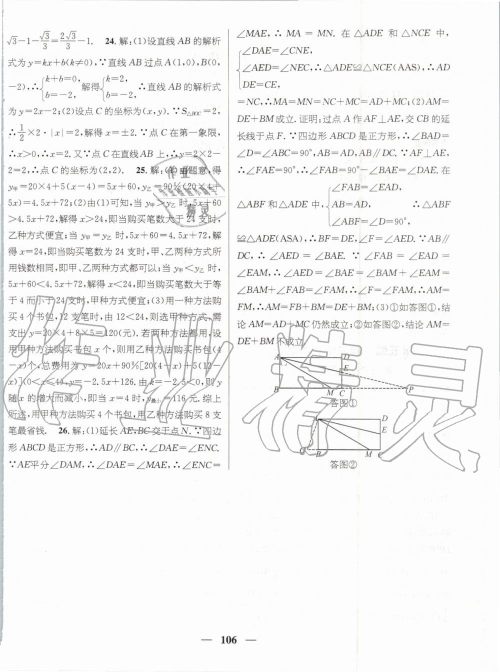 √3-1-√3/3=2√3/3-1. 24. 解:(1)设直线 AB 的解析
式为 y=kx+b(k≠0),∵直线 AB 过点 A(1,0),B(0,
-2),∴{k+b=0, b=-2, 解得{k=2, b=-2, ∴直线 AB 的解析式
为 y=2x-2;(2)设点 C 的坐标为(x,y). ∵S△BOC=2,
∴1/2×2·|x|=2,解得 x=±2. ∵点 C 在第一象限,
∴x>0,∴x=2. 又∵点 C 在直线 AB 上,∴y=2×2-
2=2,∴点 C 的坐标为(2,2). 25. 解:(1)由题意,得
y甲=20×4+5(x-4)=5x+60,y乙=90%(20×4+
5x)=4.5x+72;(2)由(1)可知,当 y甲>y乙 时,5x+60
>4.5x+72,解得 x>24,即当购买笔数大于 24 支时,
乙种方式便宜;当 y甲=y乙 时,5x+60=4.5x+72,解
得 x=24,即当购买笔数为 24 支时,甲、乙两种方式所
用钱数相同,即甲、乙两种方式都可以;当 y甲<y乙 时,
5x+60<4.5x+72,解得 x<24,即当购买笔数大于等
于 4 而小于 24 支时,甲种方式便宜;(3)用一种方法购
买 4 个书包,12 支笔时,由 12<24,则选甲种方式,需
支出 y=20×4+8×5=120(元). 若两种方法都用,设
用甲种方法购买书包 x 个,则用乙种方法购买书包(4
-x)个,总费用为 y=20x+90%[20(4-x)+5(12-
x)](0<x≤4),y=-2.5x+126,由 k=-2.5<0,则 y
随 x 的增大而减小,即当 x=4 时,y最小=116 元. 综上
所述,用甲种方法购买 4 个书包,用乙种方法购买 8 支
笔最省钱. 26. 解:(1)延长 AE,BC 交于点 N. ∵四边
形 ABCD 是正方形,∴AD∥BC,∴∠DAE=∠ENC.
∵AE平分∠DAM,∴∠DAE=∠MAE,∴∠ENC=
∠MAE,∴MA=MN. 在△ADE 和△NCE 中,
∠DAE=∠CNE,
∠AED=∠NEC,∴△ADE≌△NCE(AAS),∴AD
DE=CE,
=NC,∴MA=MN=NC+MC=AD+MC;(2)AM=
DE+BM成立. 证明:过点 A 作 AF⊥AE,交 CB 的延
长线于点 F. ∵四边形 ABCD 是正方形,∴∠BAD=
∠D=∠ABC=90°,AB=AD,AB∥DC. ∵AF⊥AE,
∴∠FAE=90°,∴∠FAB=90°-∠BAE=∠DAE. 在
∠FAB=∠EAD,
△ABF 和△ADE 中, AB=AD, ∴△ABF
∠ABF=∠D=90°,
≌△ADE(ASA),∴BF=DE,∠F=∠AED. ∵AB∥
DC,∴∠AED=∠BAE. ∵∠FAB=∠EAD=
∠EAM,∴∠AED=∠BAE=∠BAM+∠EAM=
∠BAM+∠FAB=∠FAM,∴∠F=∠FAM,∴AM=
FM,∴AM=FB+BM=DE+BM;(3)①如答图①,结
论 AM=AD+MC 仍然成立;②如答图②,结论 AM=
DE+BM不成立.
A D
E
B M C P
答图①
D
E
B M C
答图②
作业精灵
— 106 —